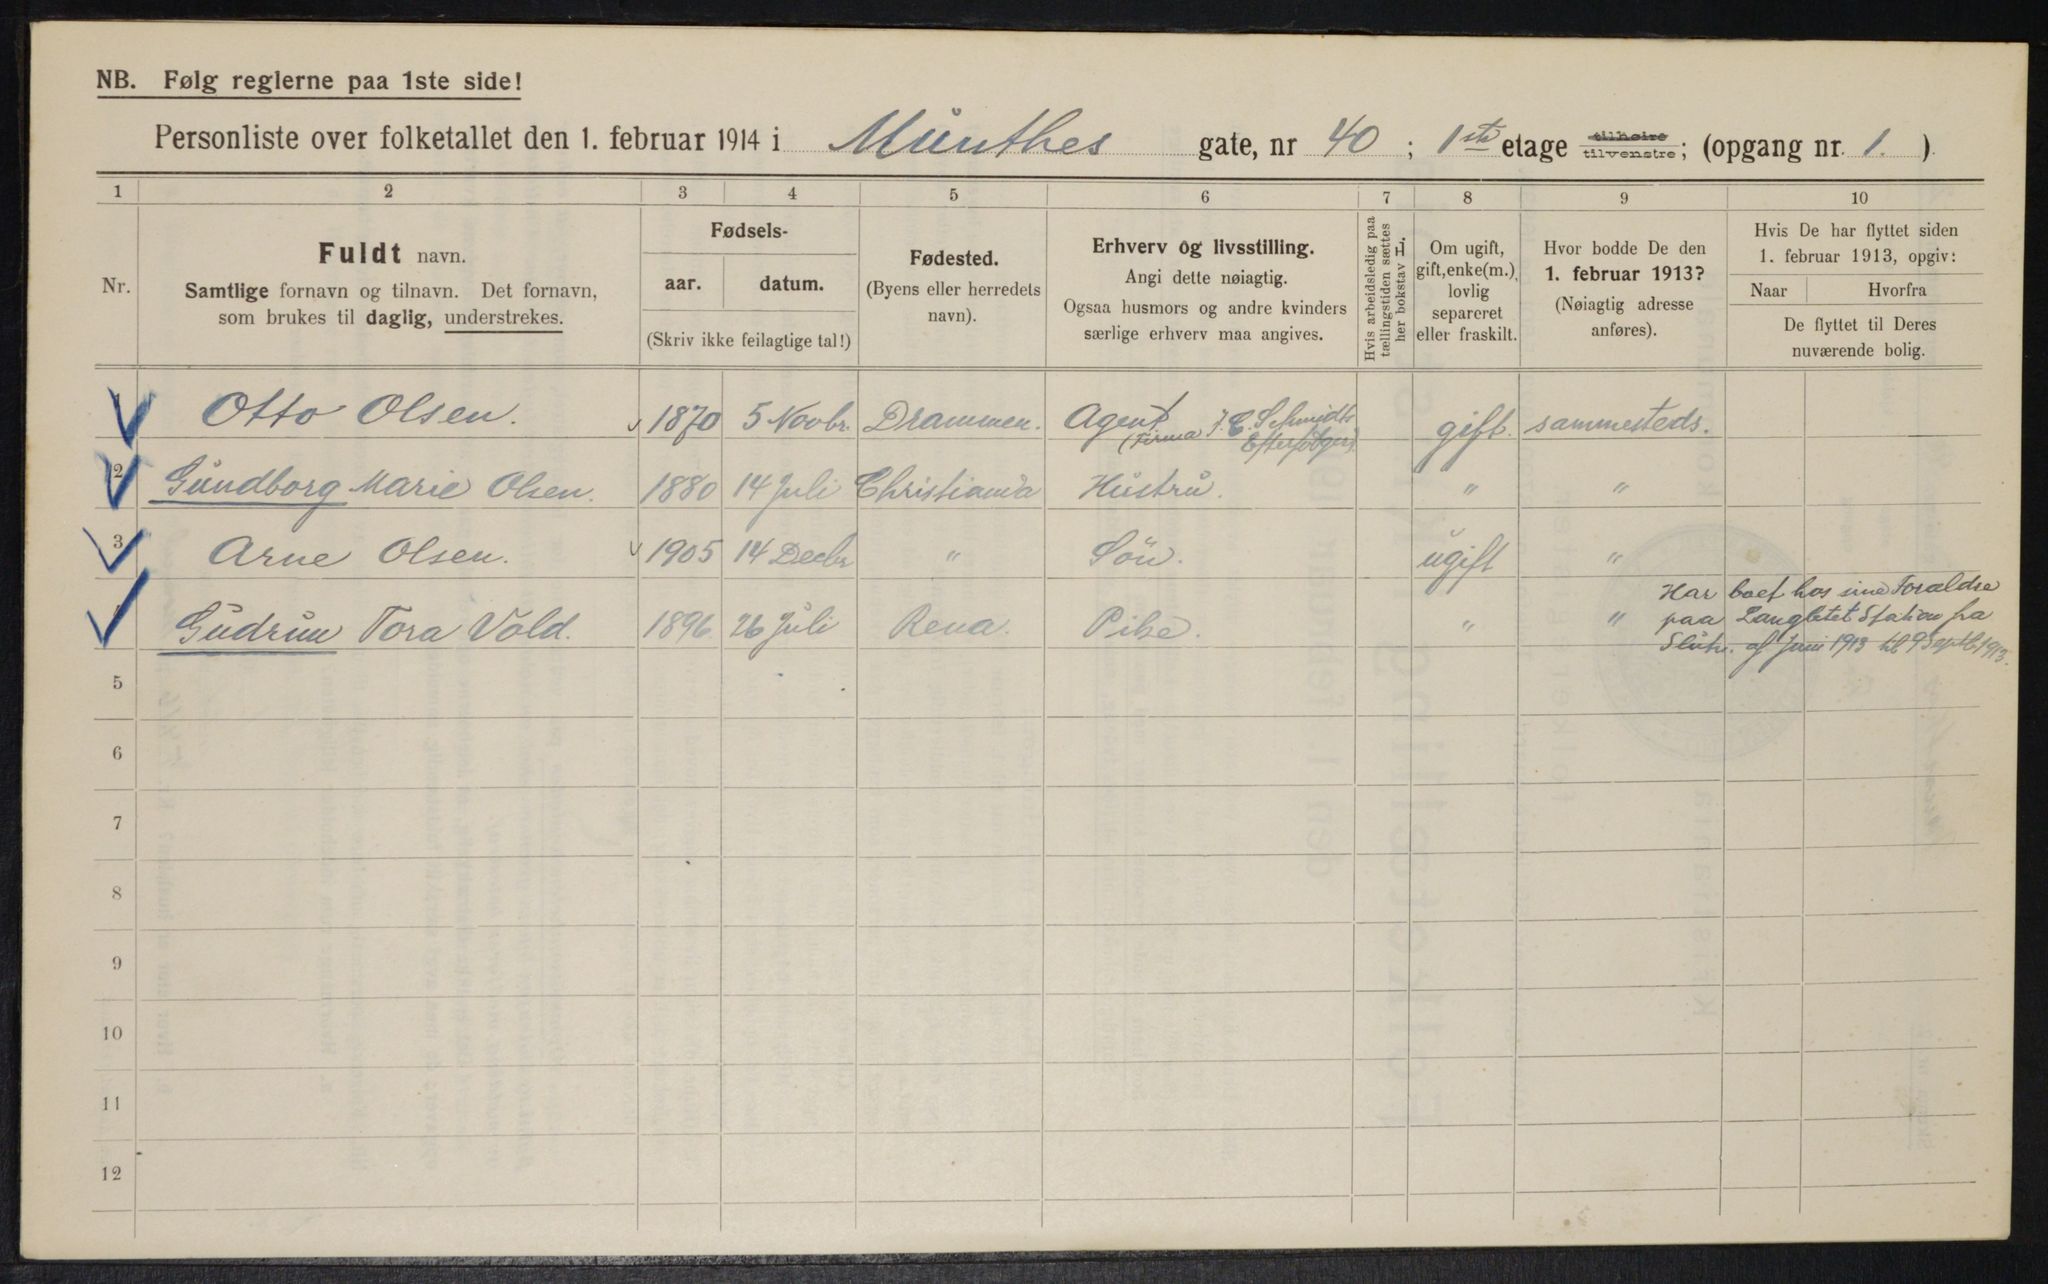 NB. Følg reglerne paa 1ste side!
Personliste over folketallet den 1. februar 1914 i Munthes gate, nr 40; 1ste etage tilhøire tilvenstre; (opgang nr. 1.)
1 2 3 4 5 6 7 8 9 10
Nr.
Fuldt navn.
Samtlige fornavn og tilnavn. Det fornavn,
som brukes til daglig, understrekes.
Fødsels-
aar. datum.
(Skriv ikke feilagtige tal!)
Fødested.
(Byens eller herredets
navn).
Erhverv og livsstilling.
Angi dette nøiagtig.
Ogsaa husmors og andre kvinders
særlige erhverv maa angives.
Hvis arbeidsledig paa
tællingstiden sættes
her bokstav L.
Om ugift,
gift, enke(m.),
lovlig
separeret
eller fraskilt.
Hvor bodde De den
1. februar 1913?
(Nøiagtig adresse
anføres).
Hvis De har flyttet siden
1. februar 1913, opgiv:
Naar Hvorfra
De flyttet til Deres
nuværende bolig.
Otto Olsen. 1870 5 Novbr. Drammen. Agent (Firma J. C. Schmidts Efterfølger) gift. sammesteds.
2 Gundborg Marie Olsen. 1880 14 Juli Christiania Hustru. " "
3 Arne Olsen. 1905 14 Decbr " Sön. ugift "
4 Gudrun Tora Vold. 1896. 26 Juli Rena. Pike. " "
Har boet hos sine Forældre
paa Station fra
af Juni 1913 til 9 Septb. 1913.
5
6
7
8
9
10
11
12